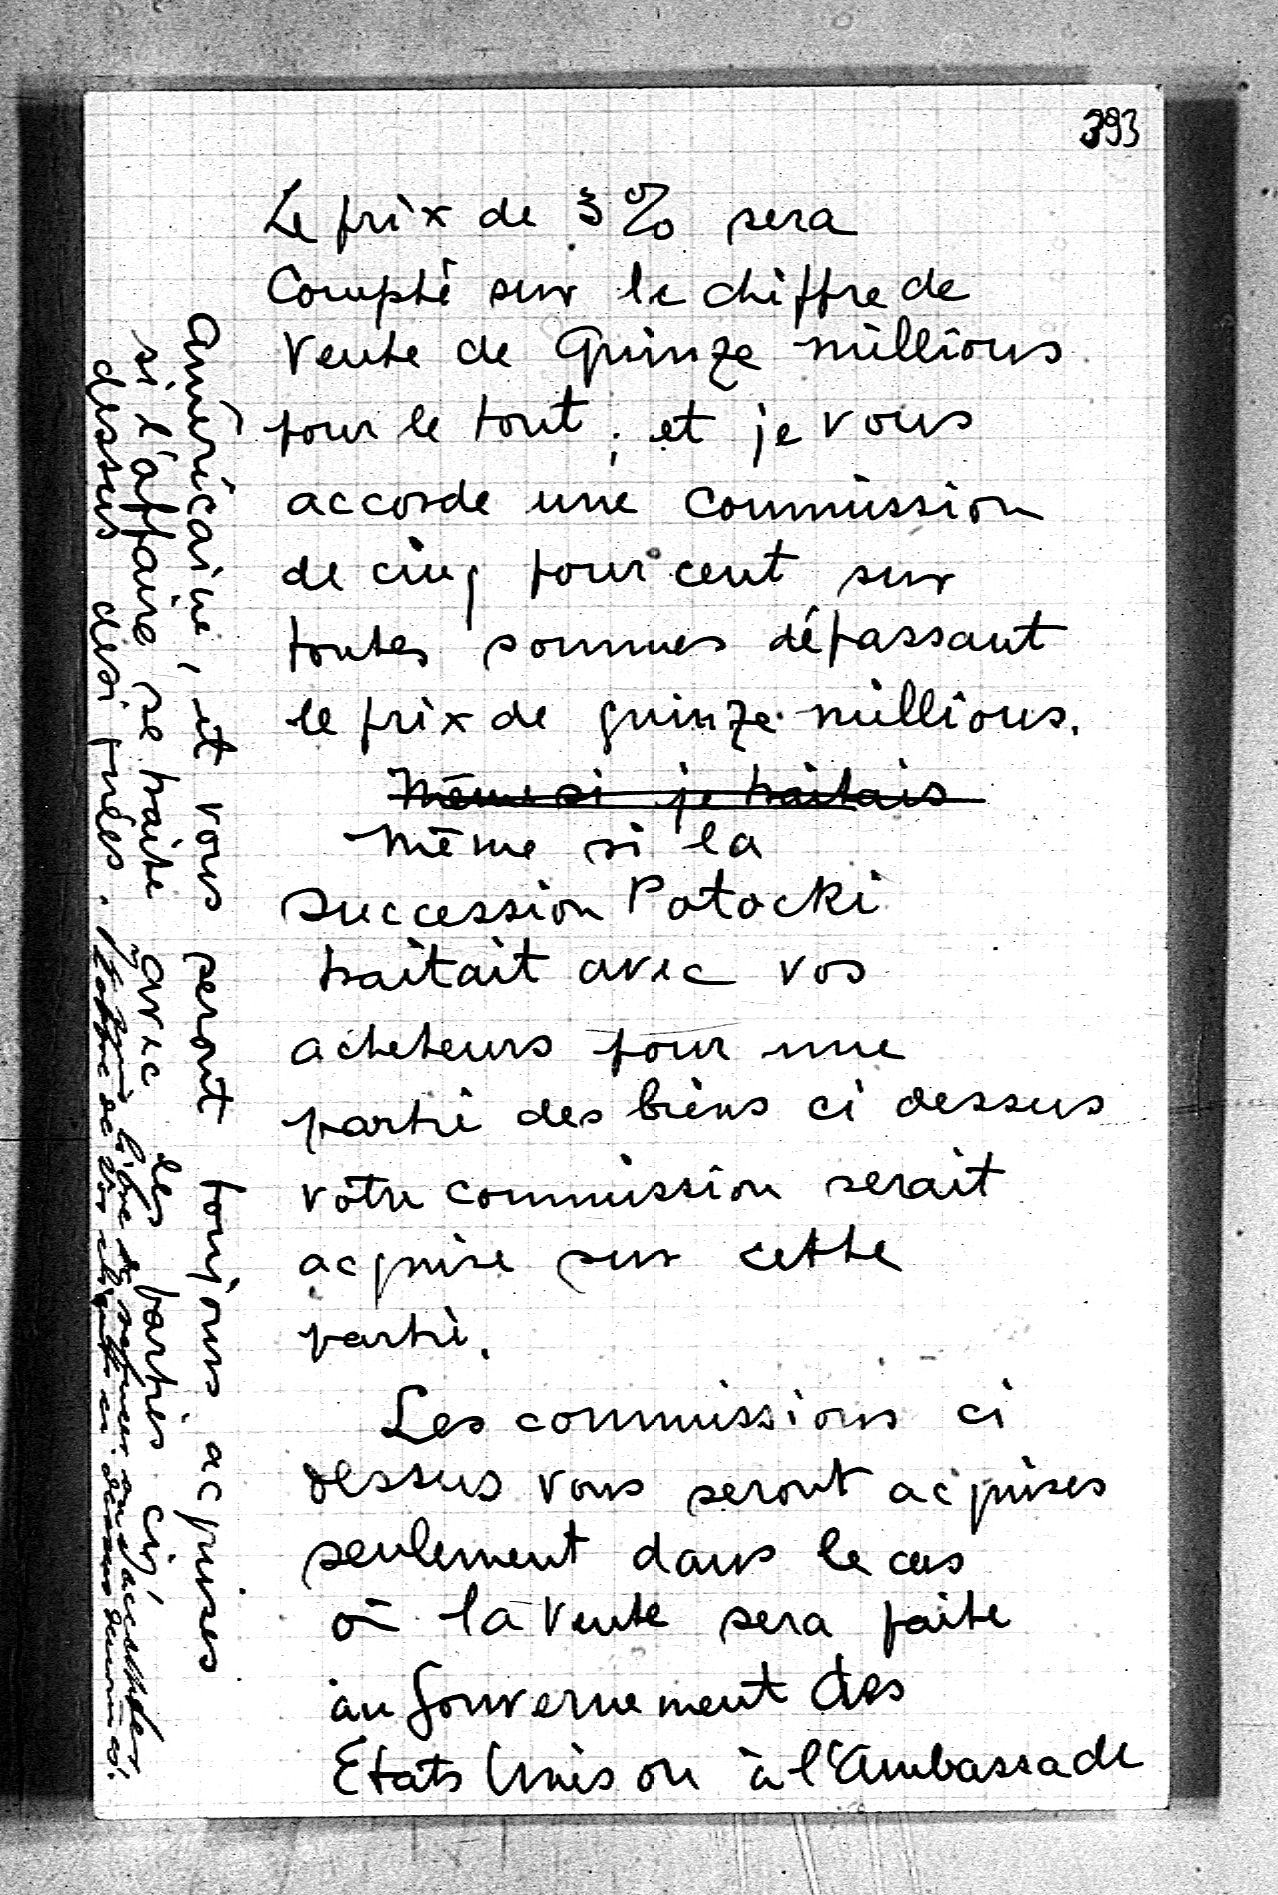 393
Le prix de 3% sera
Compté sur le chiffre de
Vente de Quinze millions
pour le tout; et je vous
accorde une commission
de cinq pour cent sur
toutes sommes dépassant
le prix de quinze millions.
Même si je traitais
Même si la
succession Potocki
traitait avec vos
acheteurs pour une
partie des biens ci dessus
votre commission serait
acquise sur cette
partie.
Les commissions ci
dessus vous seront acquises
seulement dans le cas
où la vente sera faite
au Gouvernement des
Etats Unis ou à l'Ambassade
américaine, et vous seront toujours acquises
si l'affaire se traite avec les parties ci
dessus désignées.
libre de refuser ou d'accepter